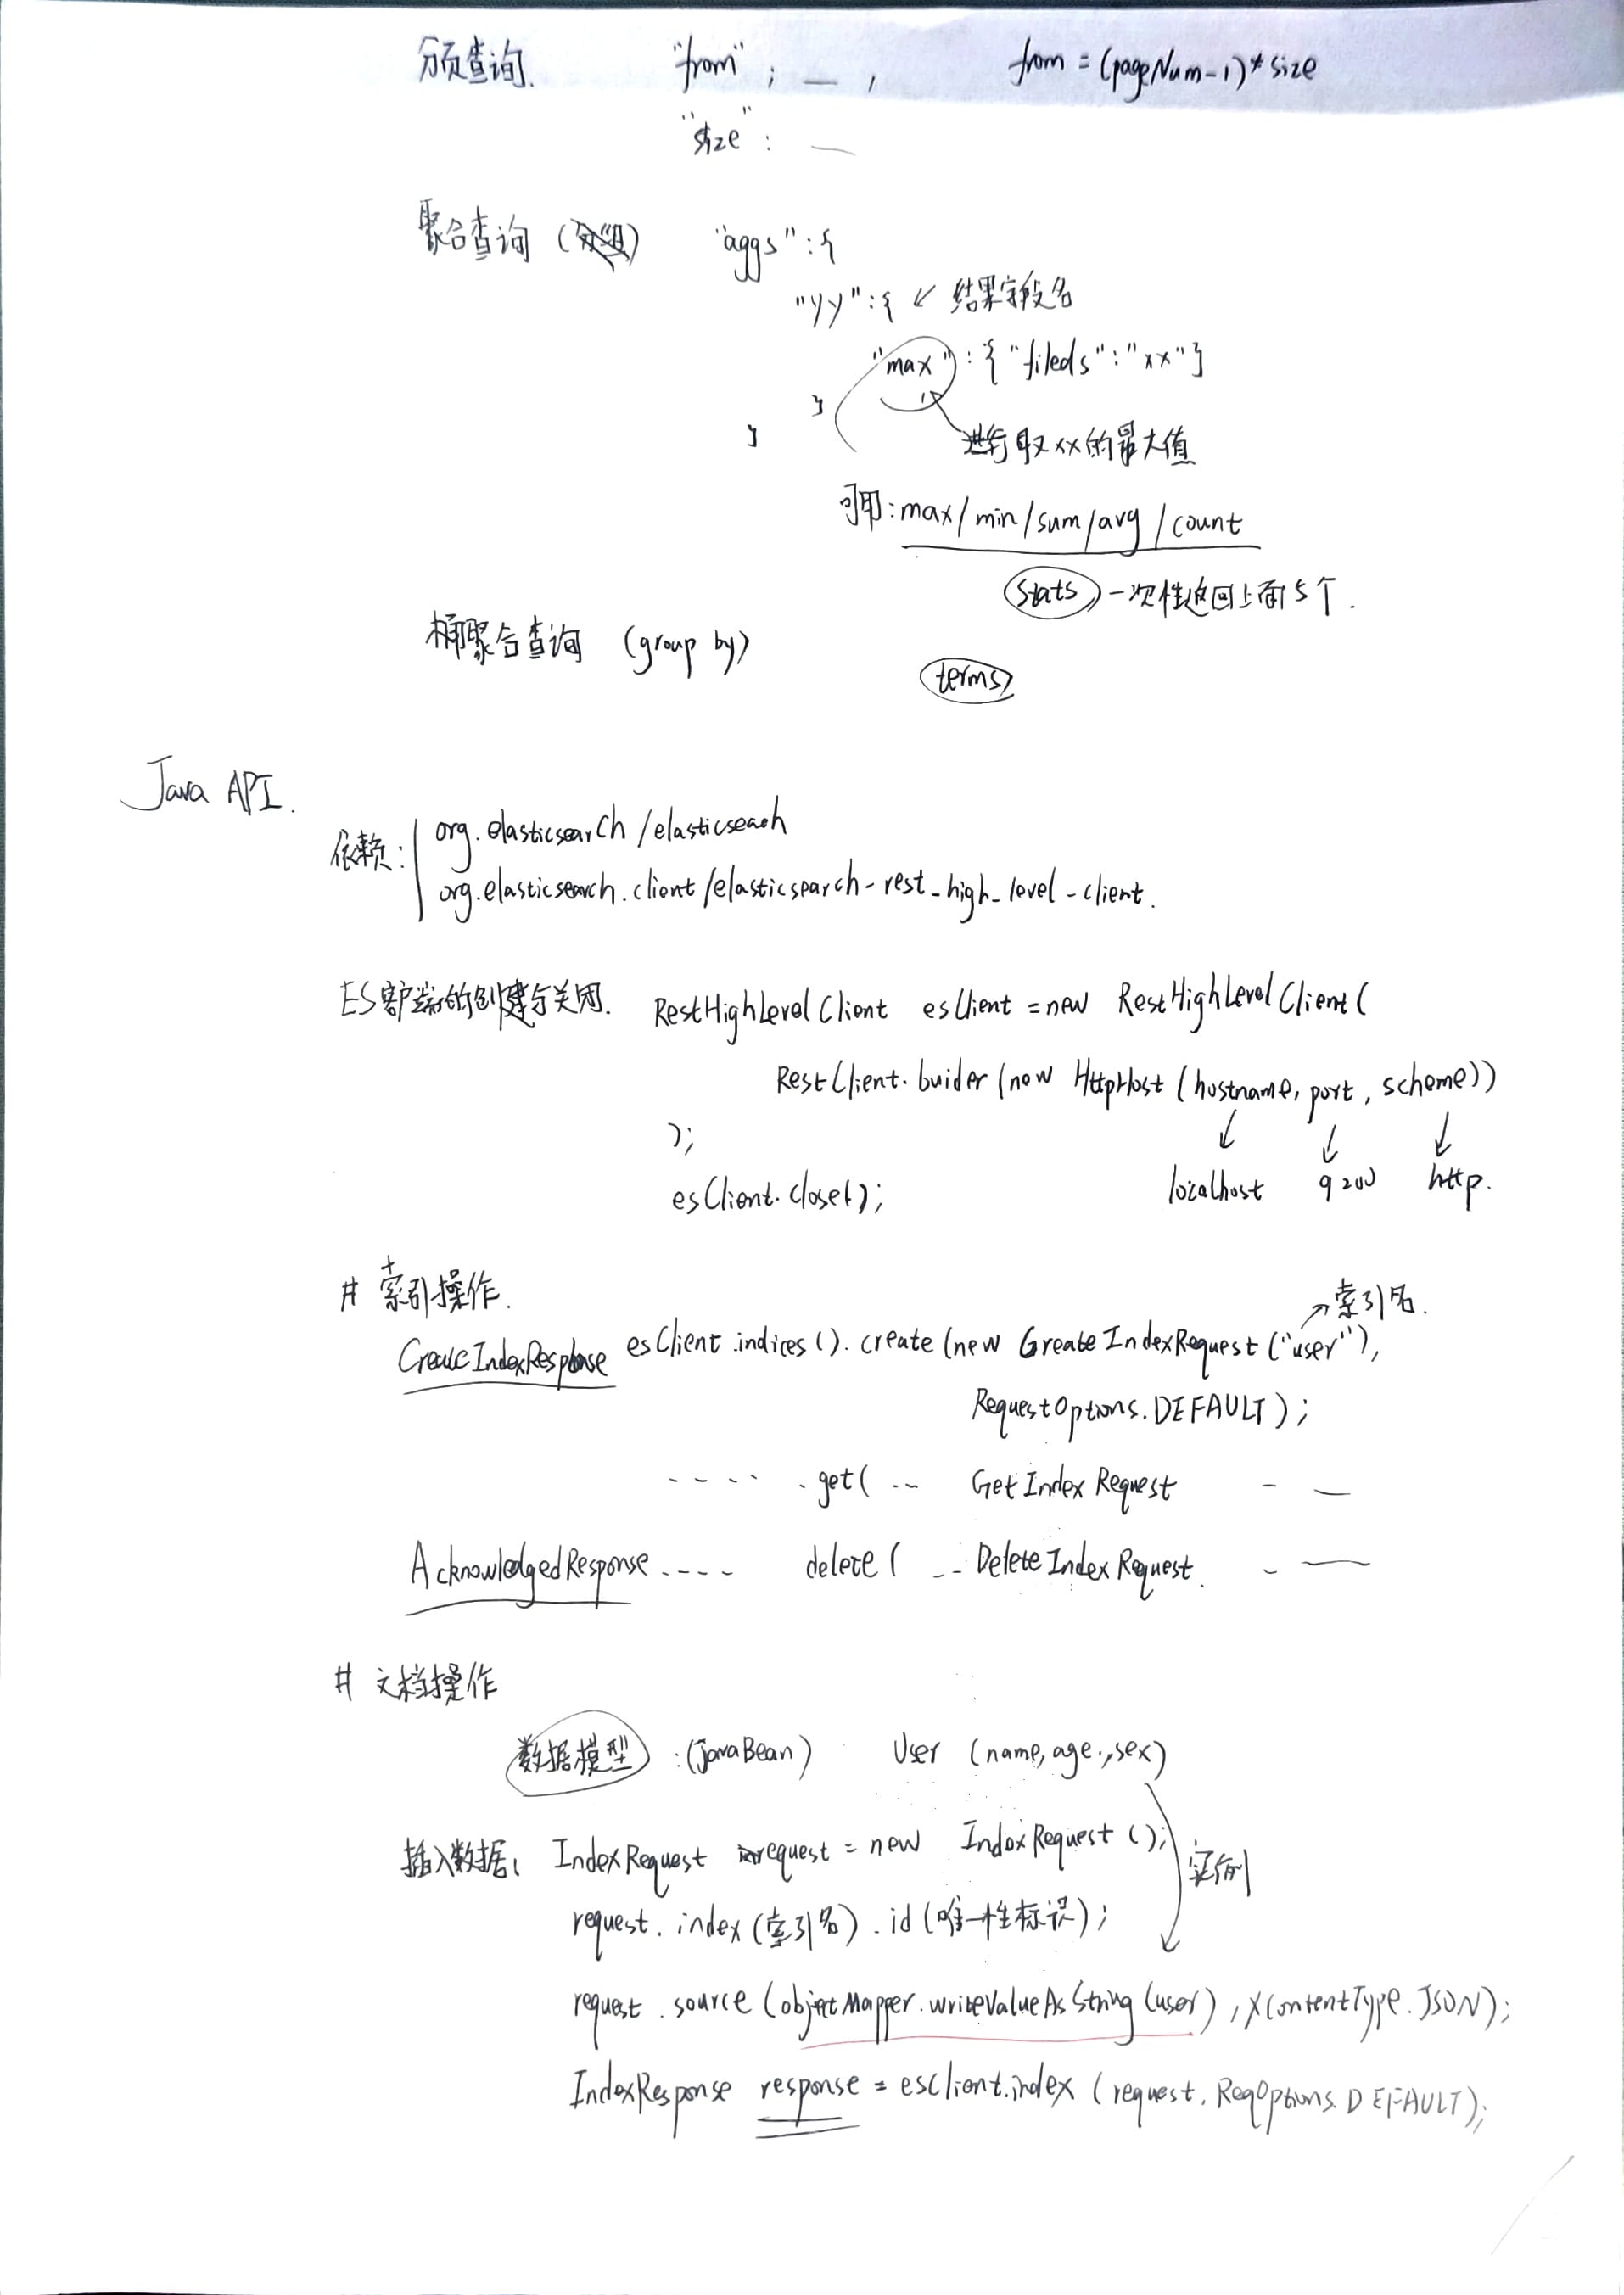 分页查询. "from" ; __ , from = (pageNum-1)* size
"size" : __
聚合查询 ( ) "aggs" : {
"yy" : { ↙ 结果字段名
"max" : { "fileds" : "xx" }
}
} 进行取xx的最大值
可用: max/min/sum/avg/count
stats 一次性返回上面5个.
桶聚合查询 (group by)
terms
Java API.
依赖: org.elasticsearch/elasticseach
org.elasticsearch.client/elasticsearch-rest_high_level-client.
ES客户端的创建与关闭. RestHighLevelClient esClient = new RestHighLevelClient(
RestClient.buider(new HttpHost(hostname, port, scheme))
); ↓ ↓ ↓
esClient.close(); localhost 9200 http.
# 索引操作. ↗索引名.
CreateIndexResponse esClient.indices().create(new GreateIndexRequest("user"),
RequestOptions.DEFAULT);
---- .get( -- GetIndexRequest - —
AcknowledgedResponse ---- delete( -- DeleteIndexRequest. - —
# 文档操作
数据模型 :(JavaBean) User (name,age.,sex)
插入数据: IndexRequest request = new IndexRequest(); 实例
request.index(索引名).id(唯一性标识);
request.source(objectMapper.writeValueAsString(user), XContentType.JSON);
IndexResponse response = esClient.index(request, ReqOptions.DEFAULT);